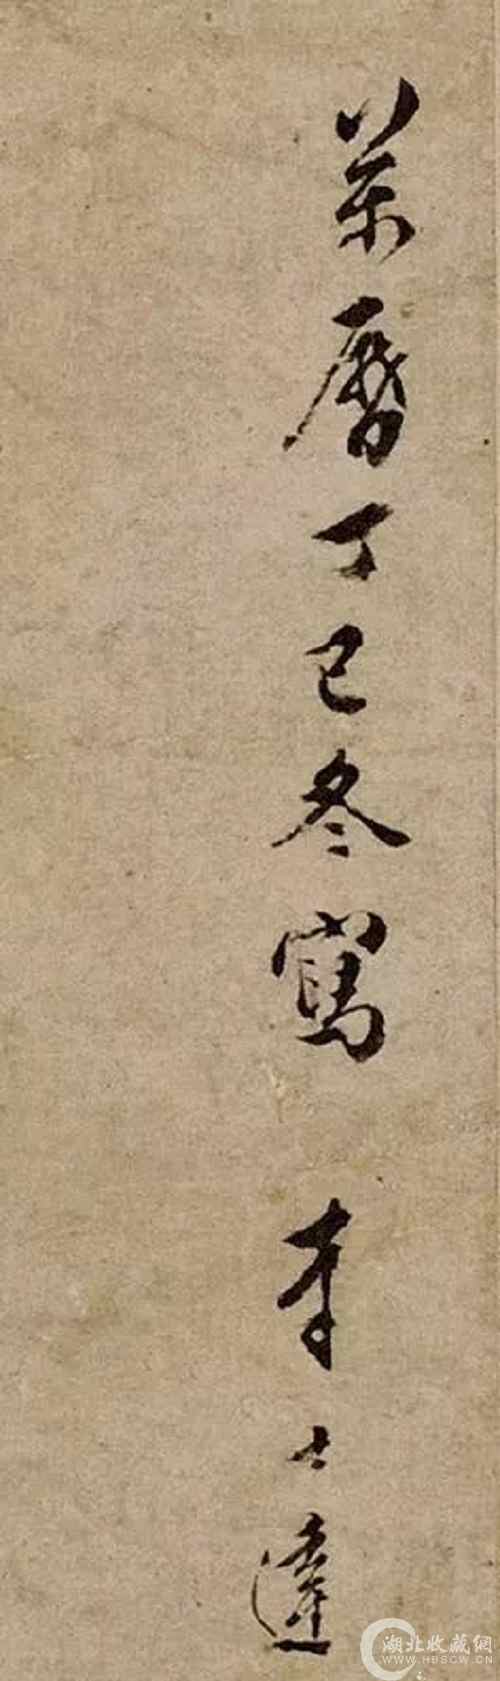 萬曆丁巳冬寫 李士達
湖北收藏網
WWW.HBSCW.CN